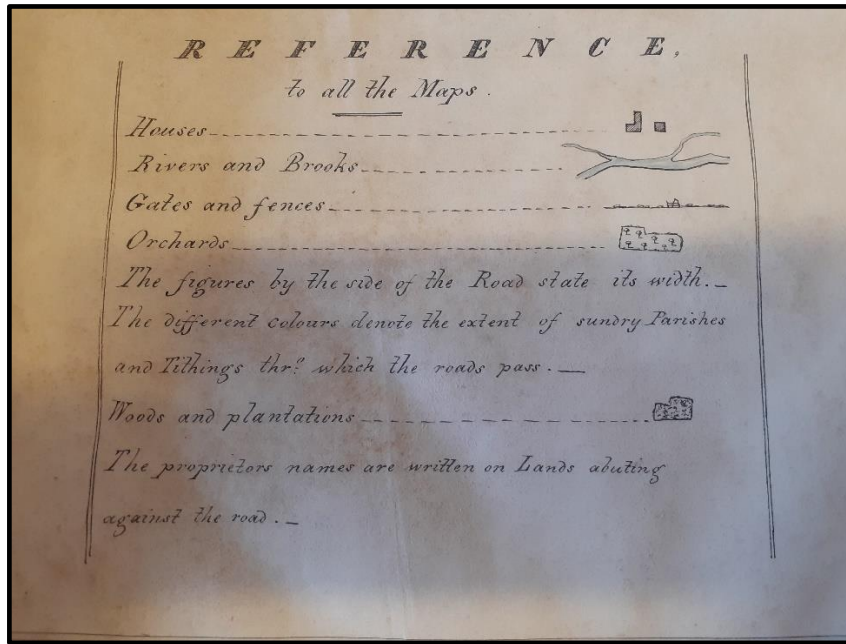 REFERENCE,
to all the Maps.
Houses
Rivers and Brooks
Gates and fences
Orchards
The figures by the side of the Road state its width.
The different colours denote the extent of sundry Parishes
and Tithings thro. which the roads pass.
Woods and plantations
The proprietors names are written on Lands abuting
against the road.